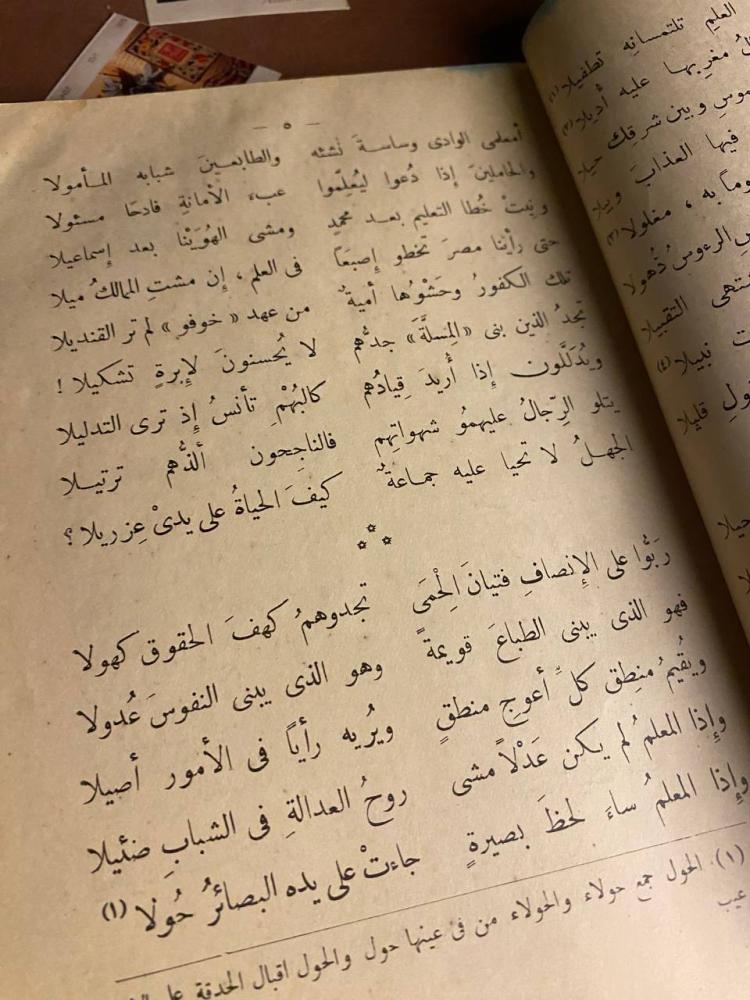 — ٥ —
أمعلمى الوادى وساسة نشئه والطابعين شبابه المأمولا
والحاملين إذا دُعوا ليُعلِّموا عبء الأمانةِ فادحًا مسئولا
ونيت خُطا التعليم بعد محمدٍ ومشى الهُوَيْنا بعد إسماعيلا
حتى رأينا مصرَ تخطو إصبعًا فى العلم ، إن مشتِ الممالكُ ميلا
تلك الكفورُ وحَشْوُها أميةٌ من عهد « خوفو » لم تر القنديلا
تجدُ الذين بنى «المِسلَّةَ» جدُّهم لا يُحسنونَ لإبرةٍ تشكيلا !
ويُدَلَّلون إذا أُريدَ قِيادُهم كالبُهْمِ تأنسُ إذ ترى التدليلا
يتلو الرِّجالُ عليهمُو شهواتِهم فالناجحون ألذُّهم ترتيلا
الجهلُ لا تحيا عليه جماعةٌ كيفَ الحياةُ على يدىْ عِزريلا ؟
رَبُّوا على الإنصافِ فتيانَ الْحِمَى تجدوهمُ كهفَ الحقوق كهولا
فهو الذى يبنى الطباعَ قويمةً وهو الذى يبنى النفوسَ عُدولا
ويُقيمُ منطِقَ كلِّ أعوجِ منطقٍ ويُريه رأيًا فى الأمور أصيلا
وإذا المعلمُ لم يكن عَدْلاً مشى روحُ العدالةِ فى الشبابِ ضئيلا
وإذا المعلمُ ساءَ لحظَ بصيرةٍ جاءتْ على يده البصائرُ حُولا (١)
(١) الحول جمع حولاء والحولاء من فى عينها حول والحول اقبال الحدقة على
عيب
العلمِ تلتمسانِه تطفيلا
مغربها عليه أُديلا
وبين شرقِك حيلا
فيها العذابَ وبيلا
به ، مغلولا (٣)
الرءوسِ ذُهولا
التقبيلا
نبيلا (٤)
قليلا